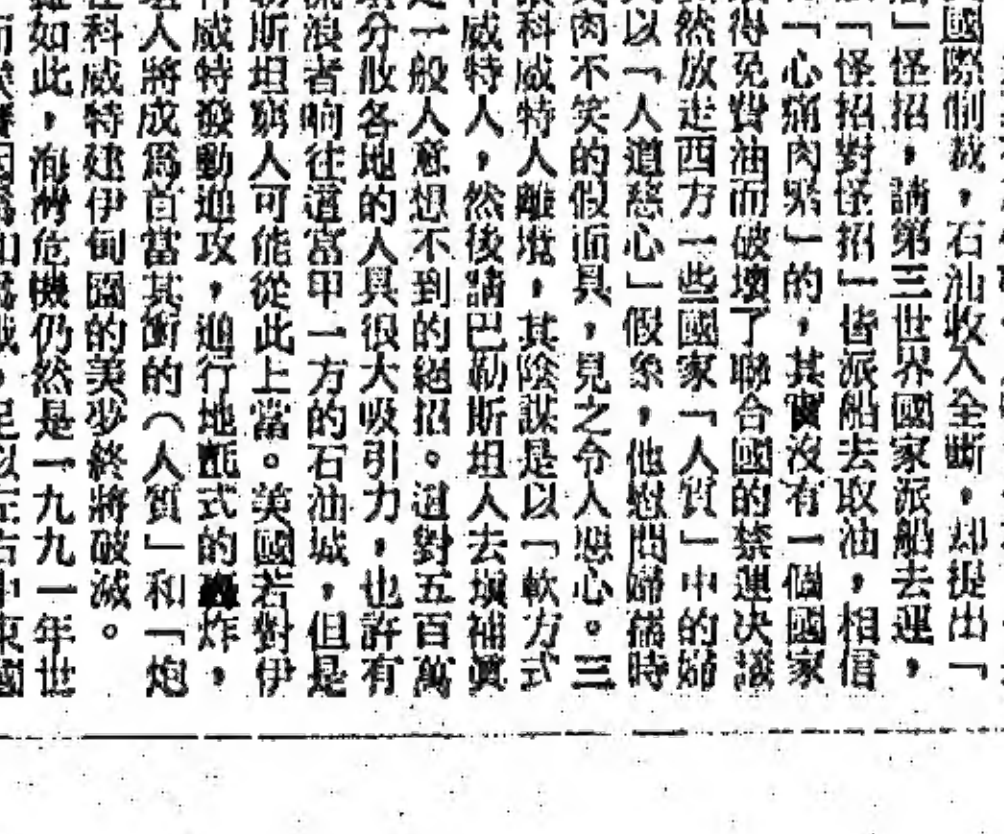 國際制裁,石油收入全斷,却提出「
」怪招,請第三世界國家派船去運,
「怪招對怪招」皆派船去取油,相信
「心痛肉緊」的,其實沒有一個國家
得免費油而破壞了聯合國的禁運決議
然放走西方一些國家「人質」中的婦
以「人道慈心」假象,他慰問婦孺時
肉不笑的假面具,見之令人惡心。三
科威特人離境,其陰謀是以「軟方式
威特人,然後請巴勒斯坦人去填補眞
一般人意想不到的絕招。這對五百萬
分散各地的人具很大吸引力,也許有
浪者响往這富甲一方的石油城,但是
斯坦窮人可能從此上當。美國若對伊
威特發動進攻,進行地氈式的轟炸,
人將成爲首當其衝的(人質」和「炮
科威特建伊甸園的美夢終將破滅。
如此,海灣危機仍然是一九九一年世
足以左右中東國